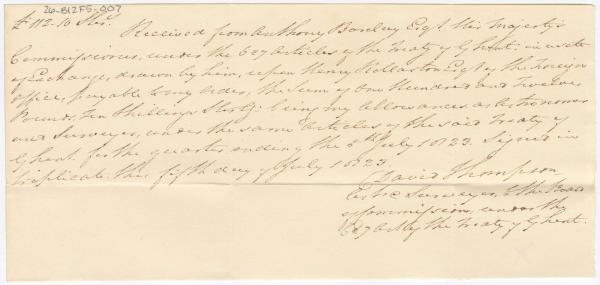 26-B12F5-007
£112.10 Stg.
Received from Anthony Barclay Esqr. His Majesty's
Commissioner, under the 6 & 7 Articles of the Treaty of Ghent; in a sett
of Exchange, drawn by him, upon Henry Rollaston Esqr of the Foreign
office, payable to my order, the Sum of One Hundred and Twelve
Pounds, Ten Shillings Sterlg: being my allowances as Astronomer
and Surveyor, under the same Articles of the said Treaty of
Ghent. for the quarter ending the 5th July 1823. Signed in
triplicate this fifth day of July 1823.
David Thompson
Surveyor, to the Board
of Commission, under the
6 & 7 by the Treaty of Ghent.